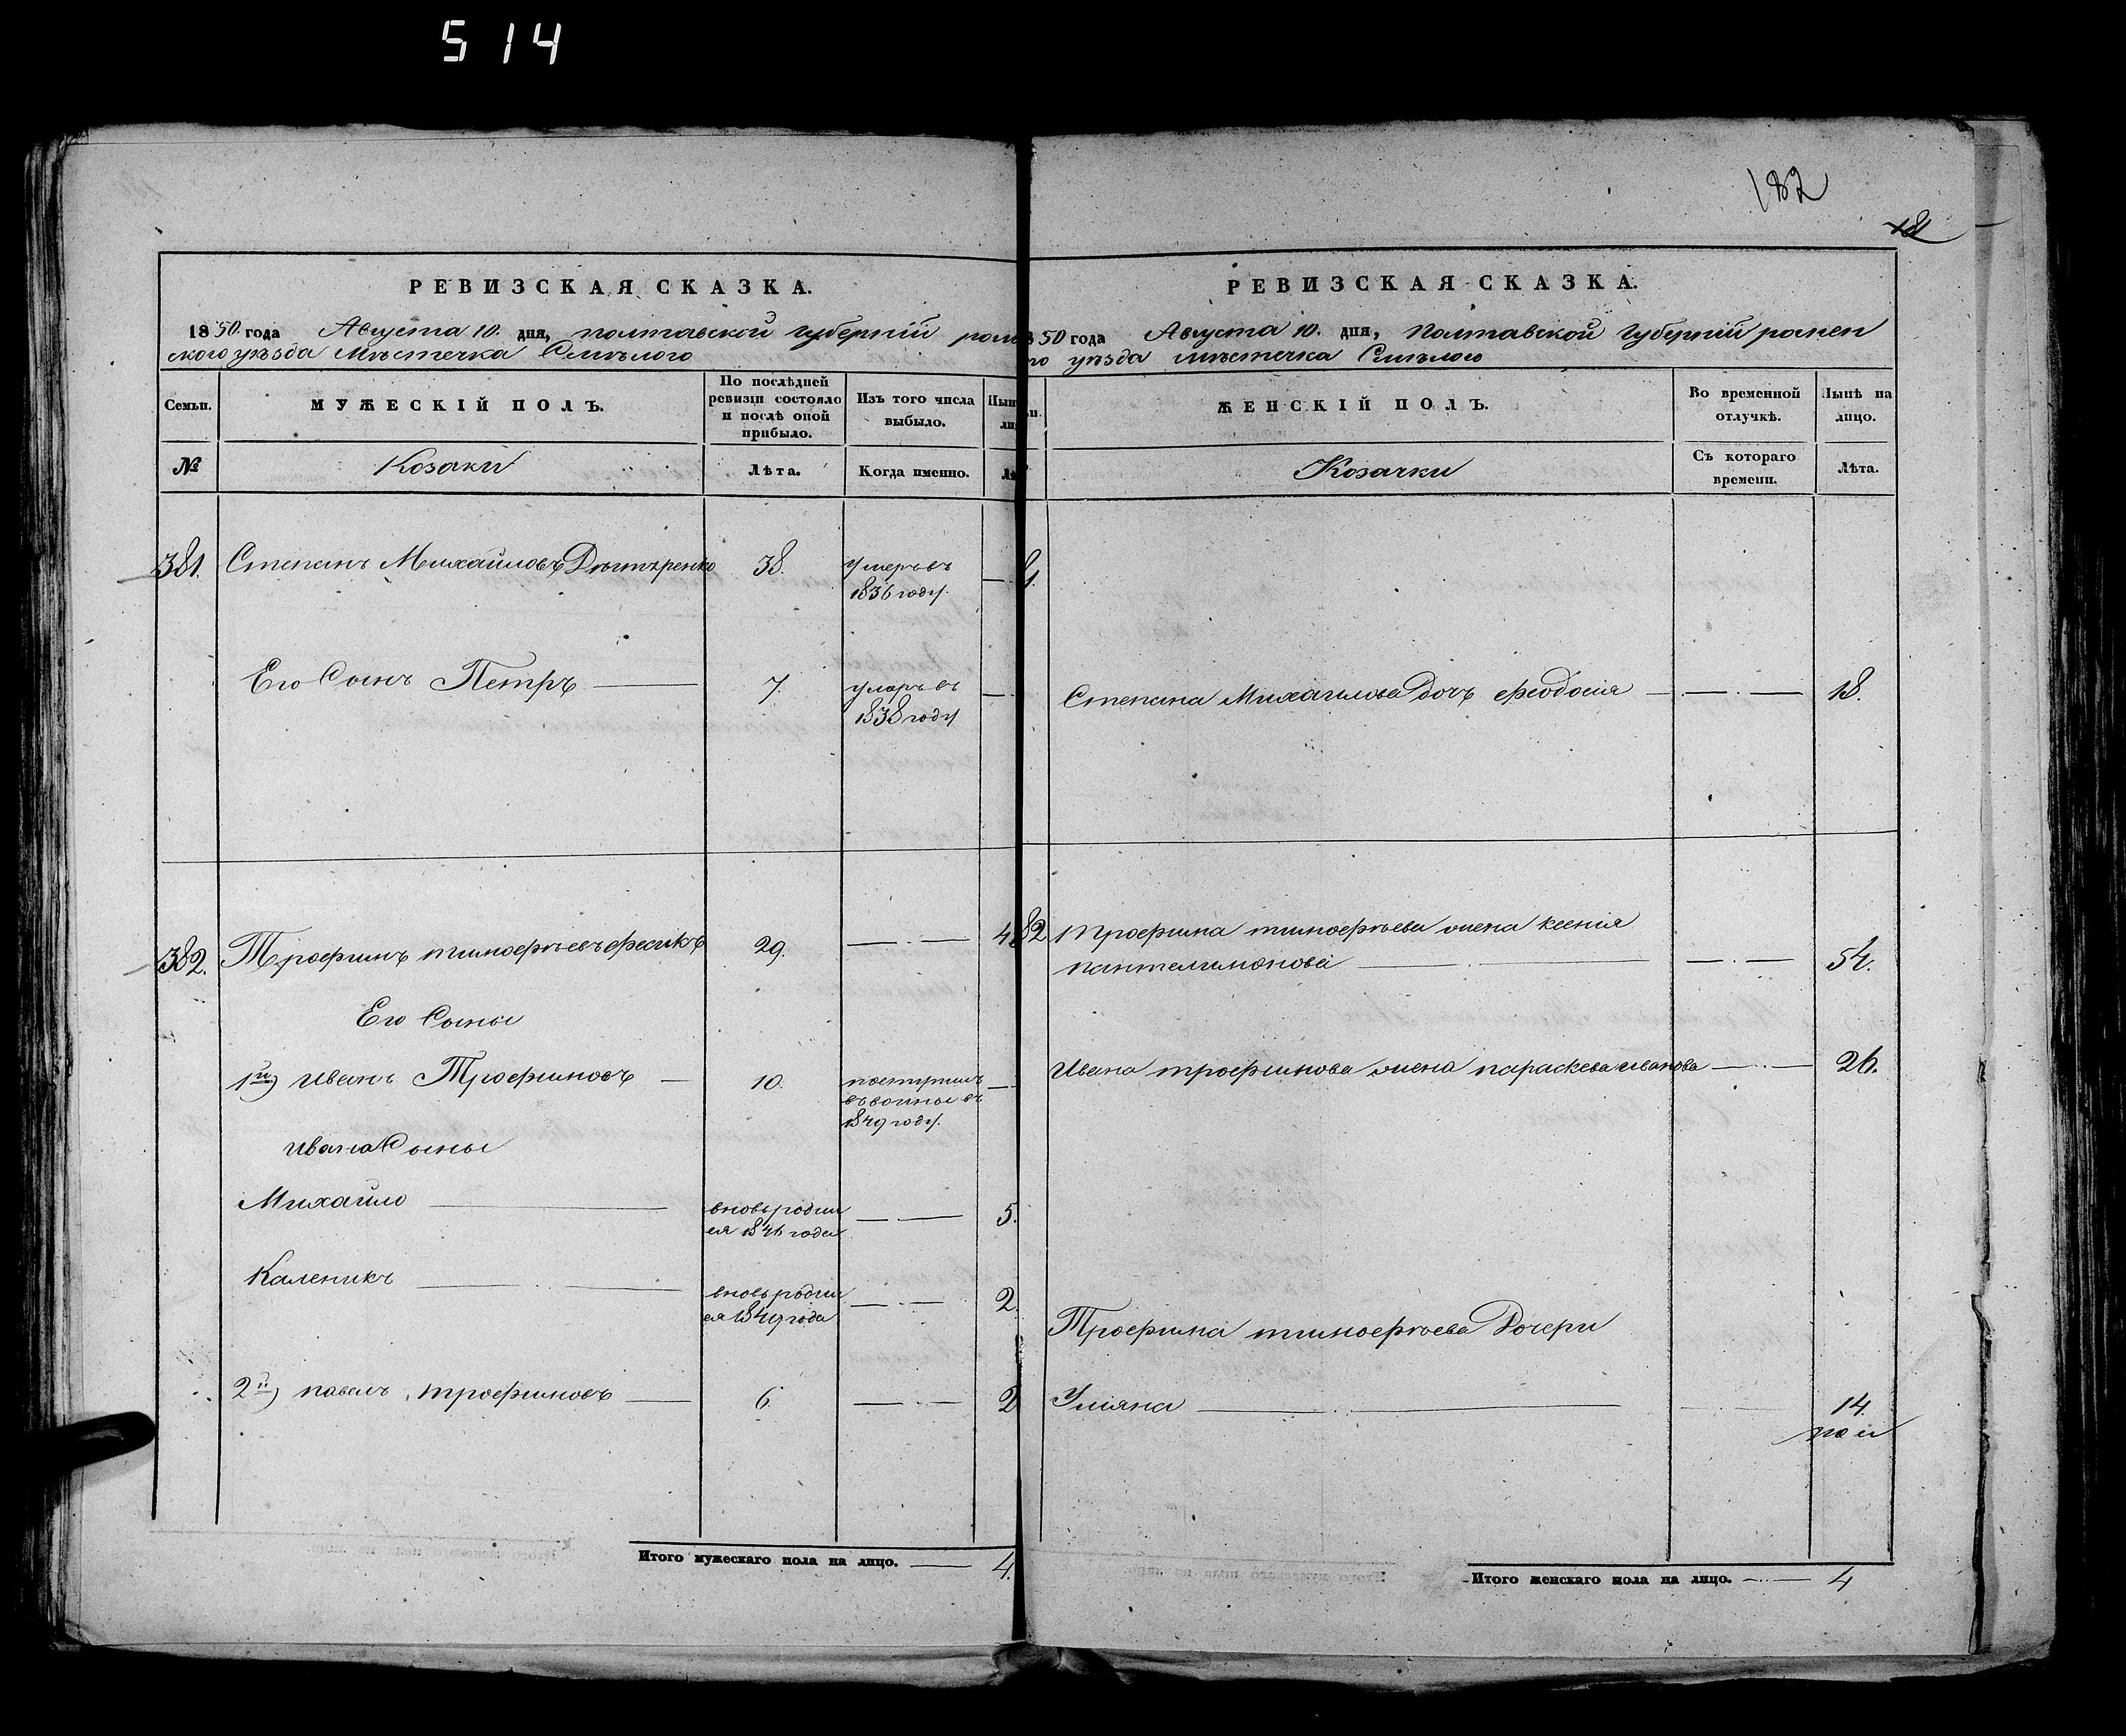 514
РЕВИЗСКАЯ СКАЗКА.
1850. года Августа 10. дня, полтавской губерніи ромен
ского уѣзда Мѣстечка Смѣлого
Семьи.
МУЖЕСКІЙ ПОЛЪ.
По послѣдней
ревизіи состояло
и послѣ оной
прибыло.
Изъ того числа
выбыло.
№
Козаки
Лѣта.
Когда именно.
381. Степанъ Михайловъ 38. умеръ въ —
1836 году.
Его Сынъ Петръ — 7. умеръ въ —
1838 году
382. Трофимъ тимофѣевъ фесикъ 29. —
Его Сыны
1й) Иванъ Трофимовъ — 10. поступилъ —
въ воины въ
1849 году.
Ивана Сыны
Михайло — вновь родил — 5.
ся 1846 года
Каленикъ — вновь родил — 2.
ся 1849 года
2й) павелъ трофимовъ — 6. — 2
Итого мужескаго пола на лицо. — 4.
182
181
РЕВИЗСКАЯ СКАЗКА.
50 года Августа 10. дня, Полтавской Губерніи ромен
го уѣзда мѣстечка Смѣлого
ЖЕНСКІЙ ПОЛЪ.
Во временной
отлучкѣ.
Нынѣ на
лицо.
Козачки
Съ котораго
времени.
Лѣта.
Степана Михайлова Дочъ феодосія — 18.
82 Трофима тимофѣева жена ксенія
пантелимонова — 54.
Ивана трофимова жена параскева иванова — 26.
Трофима тимофѣева Дочери
Уліяна — 14.
Итого женскаго пола на лицо. — 4